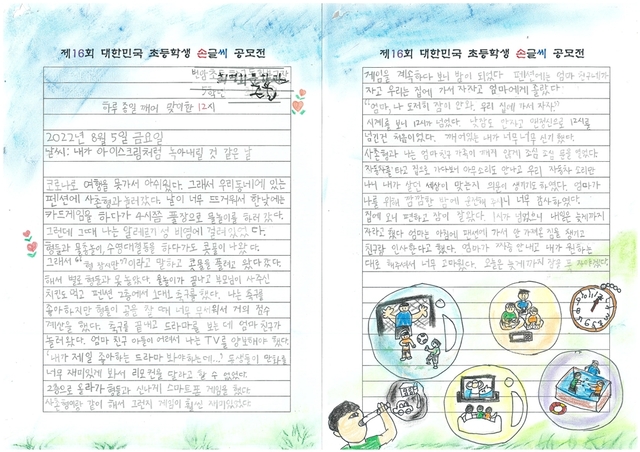 제16회 대한민국 초등학생 손글씨 공모전
하루 종일 깨어 맞이한 12시
2022년 8월 5일 금요일
날씨: 내가 아이스크림처럼 녹아내릴 것 같은 날
코로나로 여행을 못가서 아쉬웠다. 그래서 우리동네에 있는
펜션에 사촌형과 놀러갔다. 날이 너무 뜨거워서 한낮에는
카드게임을 하다가 4시쯤 풀장으로 물놀이를 하러 갔다.
그런데 그때 나는 알레르기성 비염에 걸려있었다.
형들과 물총놀이, 수영대형들을 하다가도 콧물이 나왔다.
그래서 형 잠시만 이라고 말하고 콧물을 풀러고 왔다 갔다
해서 별로 형들과 못놀았다. 물놀이가 끝나고 부모님이 사주신
치킨도 먹고 펜션 2층에서 2대2는 축구를 했다. 나는 축구를
좋아하지만 형들이 공을 찰 때 너무 무서워서 거의 점수
계산을 했다. 축구를 끝내고 드라마를 보는 데 엄마 친구가
놀러왔다. 엄마 친구 아들이 어려서 나는 TV를 양보해야 했다.
'내가 제일 좋아하는 드라마 봐야하는데...!' 동생들이 만화를
너무 재미있게 봐서 리모컨을 달라고 할 수 없었다.
2층으로 올라가 형들과 신나게 스마트폰 게임을 했다.
사촌형이랑 같이 해서 그런지 게임이 훨씬 재미있었다
제16회 대한민국 초등학생 손글씨 공모전
게임을 계속하다 보니 밤이 되었다. 펜션에는 엄마 친구네가
자고 우리는 집에 가서 자자고 엄마에게 졸랐다.
"엄마, 나 도저히 잠이 안와. 우리 집에 가서 자자"
시계를 보니 12시가 넘었다. 낮잠도 안자고 맨정신으로 12시를
넘긴건 처음이었다. 깨어있는 내가 너무너무 신기했다.
사촌형과 나는 엄마친구 가족이 깨지 않게 조심 조심 문을 열었다.
자동차를 타고 집으로 가다보니 아무소리도 안나고 우리 자동차 소리만
나니 내가 살던 세상이 맞는지 의문이 생기기도 하였다. 엄마가
나를 위해 깜깜한 밤에 운전해 주니 너무 감사하였다.
집에 오니 편하고 잠이 잘왔다. 1시가 넘었으니 내일은 늦게까지
자라고 했다 엄마는 아침에 펜션에 가서 안 가져온 짐을 챙기고
친구랑 인사한다고 했다. 엄마가 짜증 안내고 내가 원하는
대로 해주셔서 너무 고마웠다. 오늘은 늦게까지 잠을 푹 자야겠다.